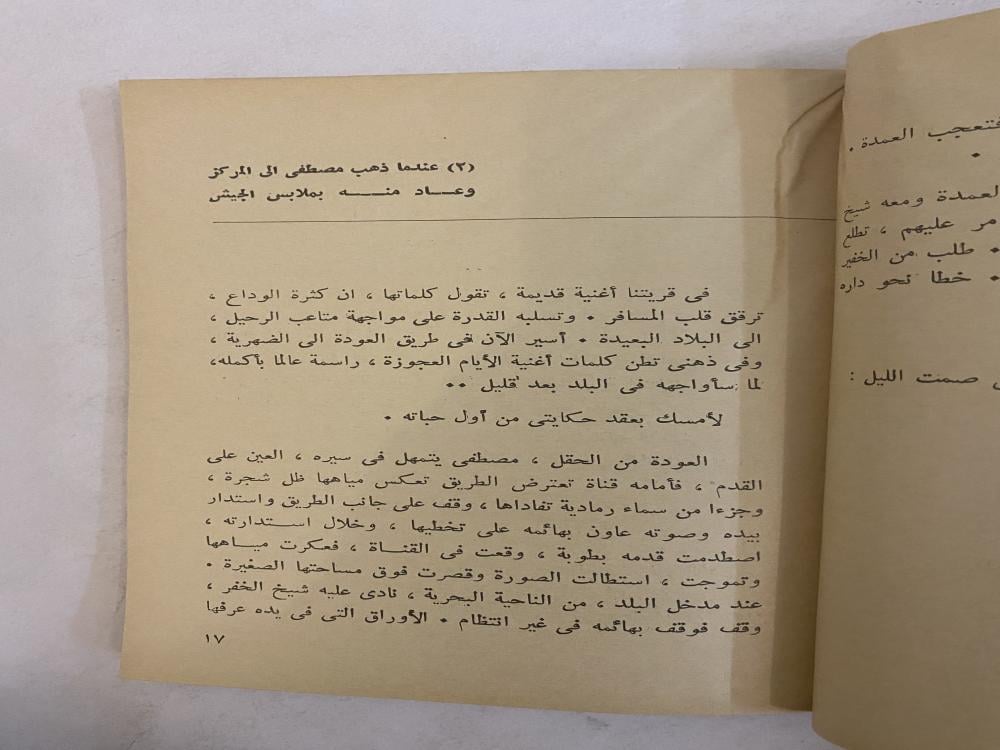 فتعجب العمدة .
.
العمدة ومعه شيخ
مر عليهم ، تطلع
. طلب من الخفير
. خطا نحو داره
صمت الليل :
(٢) عندما ذهب مصطفى الى المركز
وعـــاد منـــــه بملابس الجيش
فى قريتنا أغنية قديمة ، تقول كلماتها ، ان كثرة الوداع ،
ترقق قلب المسافر . وتسلبه القدرة على مواجهة متاعب الرحيل ،
الى البلاد البعيدة . أسير الآن فى طريق العودة الى الضهرية ،
وفى ذهنى تطن كلمات أغنية الأيام العجوزة ، راسمة عالما بأكمله،
لما سأواجهه فى البلد بعد قليل ..
لأمسك بعقد حكايتى من أول حباته .
العودة من الحقل ، مصطفى يتمهل فى سيره ، العين على
القدم ، فأمامه قناة تعترض الطريق تعكس مياهها ظل شجرة ،
وجزءا من سماء رمادية تفاداها ، وقف على جانب الطريق واستدار
بيده وصوته عاون بهائمه على تخطيها ، وخلال اســتدارته ،
اصطدمت قدمه بطوبة ، وقعت فى القنــاة ، فعكرت ميــاهها
وتموجت ، استطالت الصورة وقصرت فوق مساحتها الصغيرة .
عند مدخل البلد ، من الناحية البحرية ، نادى عليه شيخ الخفر ،
وقف فوقف بهائمه فى غير انتظام . الأوراق التى فى يده عرفها
١٧